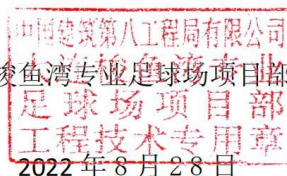 中国建筑第八工程局有限公司
梭鱼湾专业足球场项目部
足球场项目部
工程技术专用章
2022年8月28日